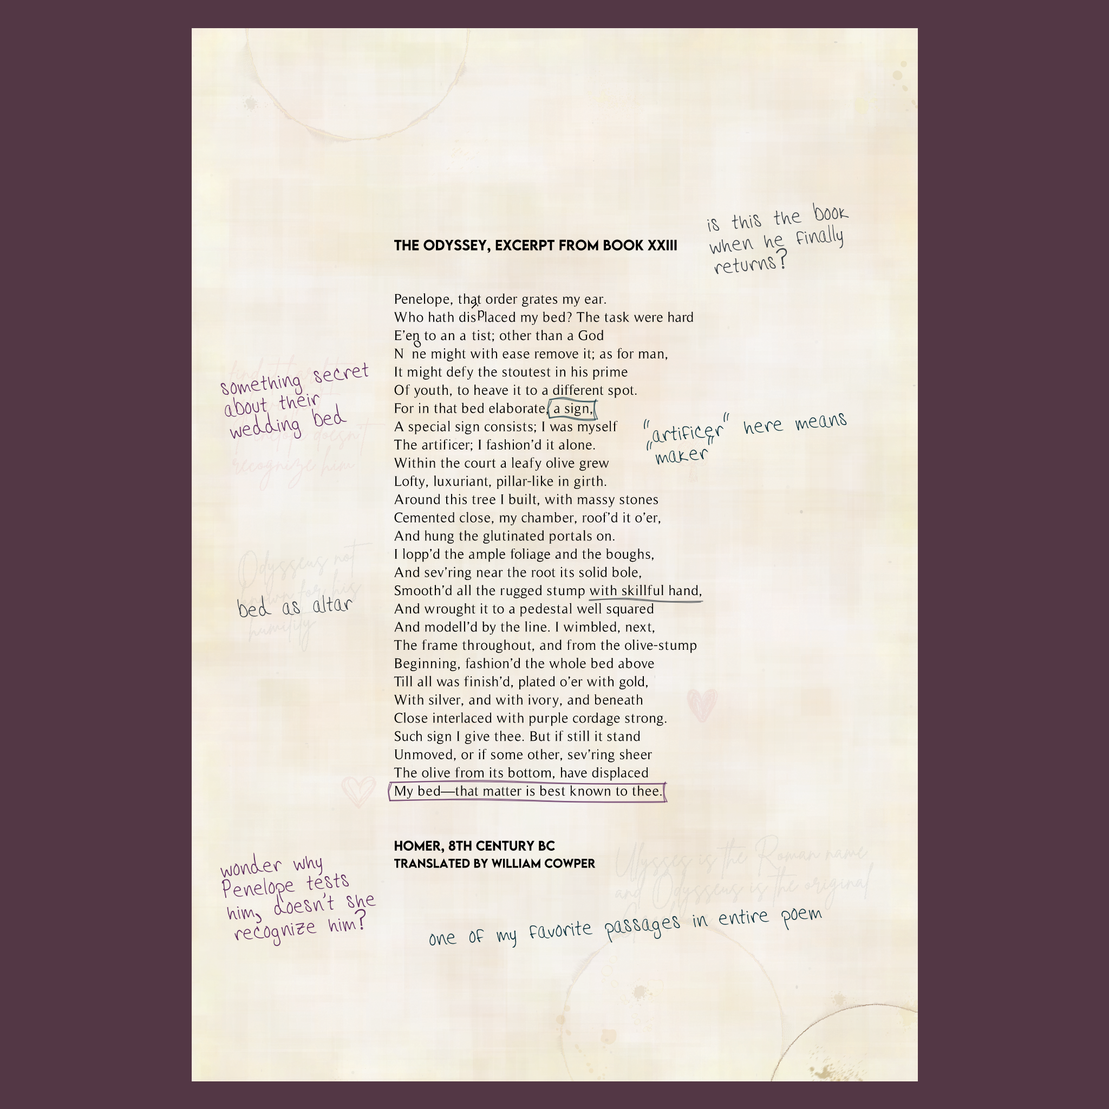 is this the book
when he finally
returns?
THE ODYSSEY, EXCERPT FROM BOOK XXIII
Penelope, that order grates my ear.
Who hath displaced my bed? The task were hard
E'en to an a tist; other than a God
None might with ease remove it; as for man,
It might defy the stoutest in his prime
Of youth, to heave it to a different spot.
For in that bed elaborate, a sign,
A special sign consists; I was myself
The artificer; I fashion'd it alone.
Within the court a leafy olive grew
Lofty, luxuriant, pillar-like in girth.
Around this tree I built, with massy stones
Cemented close, my chamber, roof'd it o'er,
And hung the glutinated portals on.
I lopp'd the ample foliage and the boughs,
And sev'ring near the root its solid bole,
Smooth'd all the rugged stump with skillful hand,
And wrought it to a pedestal well squared
And modell'd by the line. I wimbled, next,
The frame throughout, and from the olive-stump
Beginning, fashion'd the whole bed above
Till all was finish'd, plated o'er with gold,
With silver, and with ivory, and beneath
Close interlaced with purple cordage strong.
Such sign I give thee. But if still it stand
Unmoved, or if some other, sev'ring sheer
The olive from its bottom, have displaced
My bed—that matter is best known to thee.
something secret
about their
wedding bed
doesn't
recognize him
"artificer" here means
"maker"
Odysseus not
for his
humility
bed as altar
HOMER, 8TH CENTURY BC
TRANSLATED BY WILLIAM COWPER
is the Roman name,
and Odysseus is the original
wonder why
Penelope tests
him, doesn't she
recognize him?
one of my favorite passages in entire poem